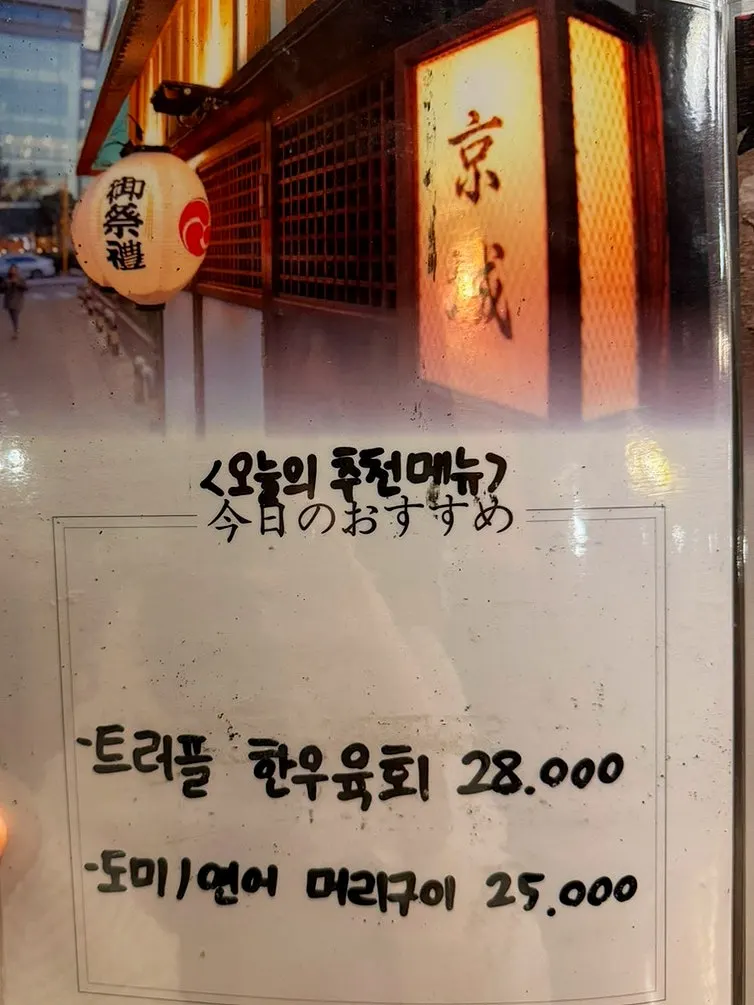 御祭禮
京城
<오늘의 추천메뉴>
今日のおすすめ
-트러플 한우육회 28.000
-도미/연어 머리구이 25.000